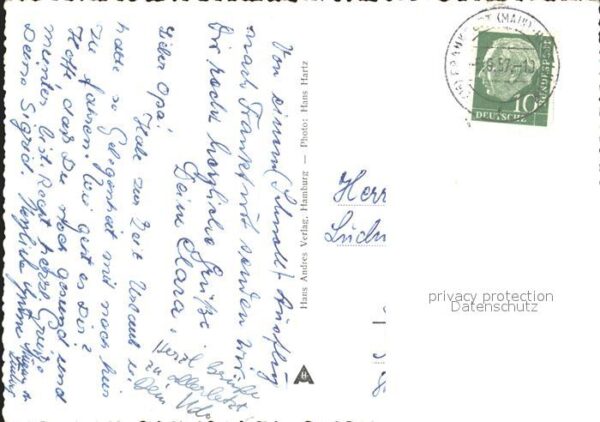 Von einem (Schnell) Ausflug
nach Frankfurt senden wir
Dir recht herzliche Grüße.
Deine Clara.
Lieber Opa!
Habe zur Zeit Urlaub u.
habe so Gelegenheit mit nach hier
zu fahren. Wie geht es Dir?
Hoffe, das Du noch gesund und
munter bist. Recht herzl. Grüße
Deine Sigrid. Herzliche Grüße
Herzl. Grüße
zu allerletzt
Dein Udo
Hans Andres Verlag, Hamburg — Photo: Hans Hartz
Herr
FRANKFURT (MAIN)
8.57.-1
10
DEUTSCHE BUNDESPOST
privacy protection
Datenschutz